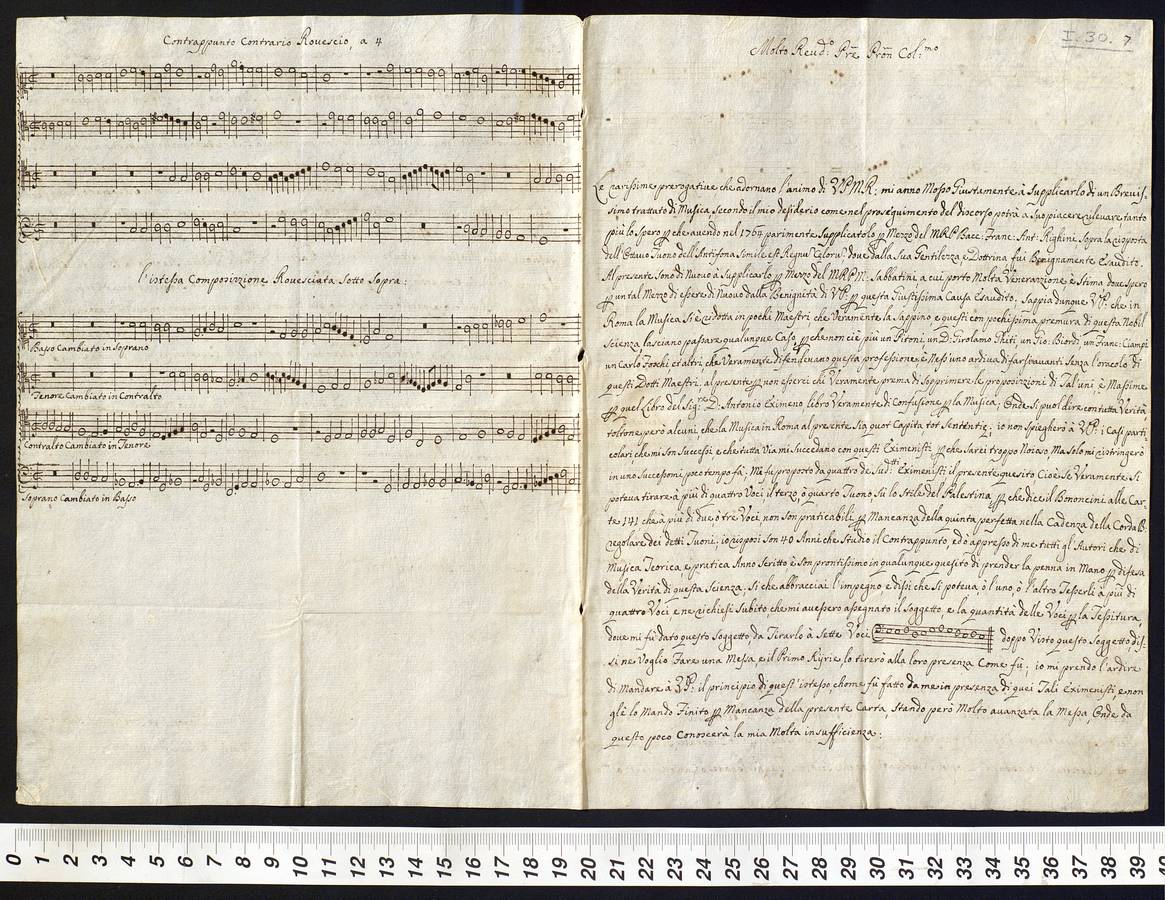 Contrappunto Contrario Rovescio, a 4
l'istessa Composizzione Rovesciata Sotto Sopra:
Basso Cambiato in Soprano
Tenore Cambiato in Contralto
Contralto Cambiato in Tenore
Soprano Cambiato in Basso
I. 30. 7
Molto Reud:º Pre Pron Col:mo
Le rarissime prerogative che adornano l'animo di V P M R: mi anno Mosso Giustamente à Supplicarlo di un Brevis-
simo trattato di Musica Secondo il mio desiderio come nel proseguimento del discorso potrà a Suo piacere rulevare, tanto
più lo Spero che avendo nel 1764 parimente Supplicatolo Mezzo del MRP Bacc: Franc: Ant: Righini Sopra la risposta
dell'Ottavo Tuono dell'Antifona Simile est Regnu Celoru dove dalla Sua Gentilezza e Dottrina fui Benignamente Esaudito.
Al presente Sono di Nuovo à Supplicarlo Mezzo del M.R.P.M: Sabbatini, a cui porto Molta Venerazzione e Stima dove Spero
un tal Mezzo di essere di Nuovo dalla Benignità di VP: questa Giustissima Causa Esaudito. Sappia dunque VP: che in
Roma la Musica Si è ridotta in pochi Maestri, che Veramente la Sappino e questi con pochissima premura di questa Nobil
Scienza lasciano passare qualunque Caso, che non ci è più un Pitoni, un D: Girolamo Chiti, un Gio: Biordi, un Franc: Ciampi
un Carlo Foschi et altri che Veramente difendevano questa professione e Nessuno ardiva di farsi avanti Senza l'oracolo di
questi Dotti Maestri, al presente non esserci chi Veramente prema di Sopprimere le proposizzioni di Tal'uni, e Massime
quel Libro del Sig:re D: Antonio Eximeno libro Veramente di Confusione la Musica, Onde Si puol dire con tutta Verità
toltone però alcuni, che la Musica in Roma al presente Sia quot Capita tot Sententie; io non Spiegherò à VP: i Casi parti
colari, che mi Son Successi e che tutta Via mi Succedano con questi Eximenisti che Sarei troppo Noioso, Ma Solo mi ristringerò
in uno Successomi poco tempo fà; Mi fu proposto da quattro de Sud:tti Eximenisti il presente quesito Cioè Se Veramente Si
poteva tirare à più di quattro Voci il terzo, ò quarto Tuono Sù lo Stile del Palestina che dice il Bononcini alle Car-
te 141 che à più di due, ò tre Voci, non Son praticabili Mancanza della quinta perfetta nella Cadenza della Corda B:
regolare dei detti Tuoni; io risposi Son 40 Anni che Studio il Contrappunto, ed ò appresso di me tutti gl'Autori che di
Musica Teorica, e pratica Anno Scritto, e Son prontissimo in qualunque quesito di prender la penna in Mano difesa
della Verità di questa Scienza, Si che abbracciai l'impegno e dissi che Si poteva, ò l'uno, ò l'altro Tesserli à più di
quattro Voci e ne richiesi Subito, che mi avessero assegnato il Soggetto, e la quantità delle Voci la Tessitura,
dove mi fù dato questo Soggetto, da Tirarlo à Sette Voci doppo Visto questo Soggetto, dis-
si ne Voglio Fare una Messa, e il Primo Kyrie, lo tirerò alla loro presenza Come fù; io mi prendo l'ardire
di Mandare à VP: il principio di quest'istesso, chome fù fatto da me in presenza di quei Tali Eximenisti, e non
gl'è lo Mando Finito Mancanza della presente Carta, Stando però Molto avanzata la Messa, Onde da
questo poco Conoscerà la mia Molta insufficienza: